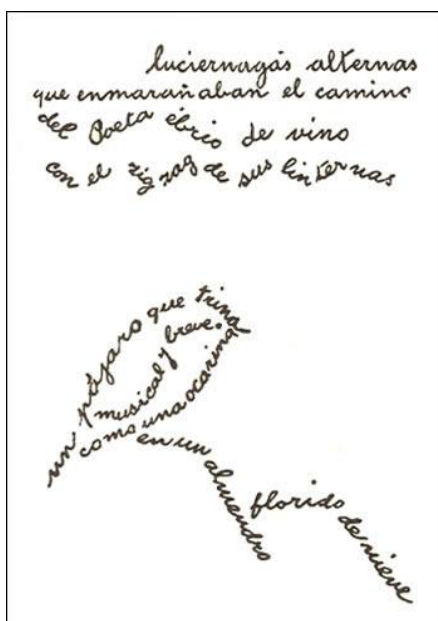 luciernagas alternas
que enmarañaban el camino
del Poeta ébrio de vino
con el zigzag de sus linternas
un pájaro que trina
musical y breve
como una ocarina
en un almendro
florido
de nieve